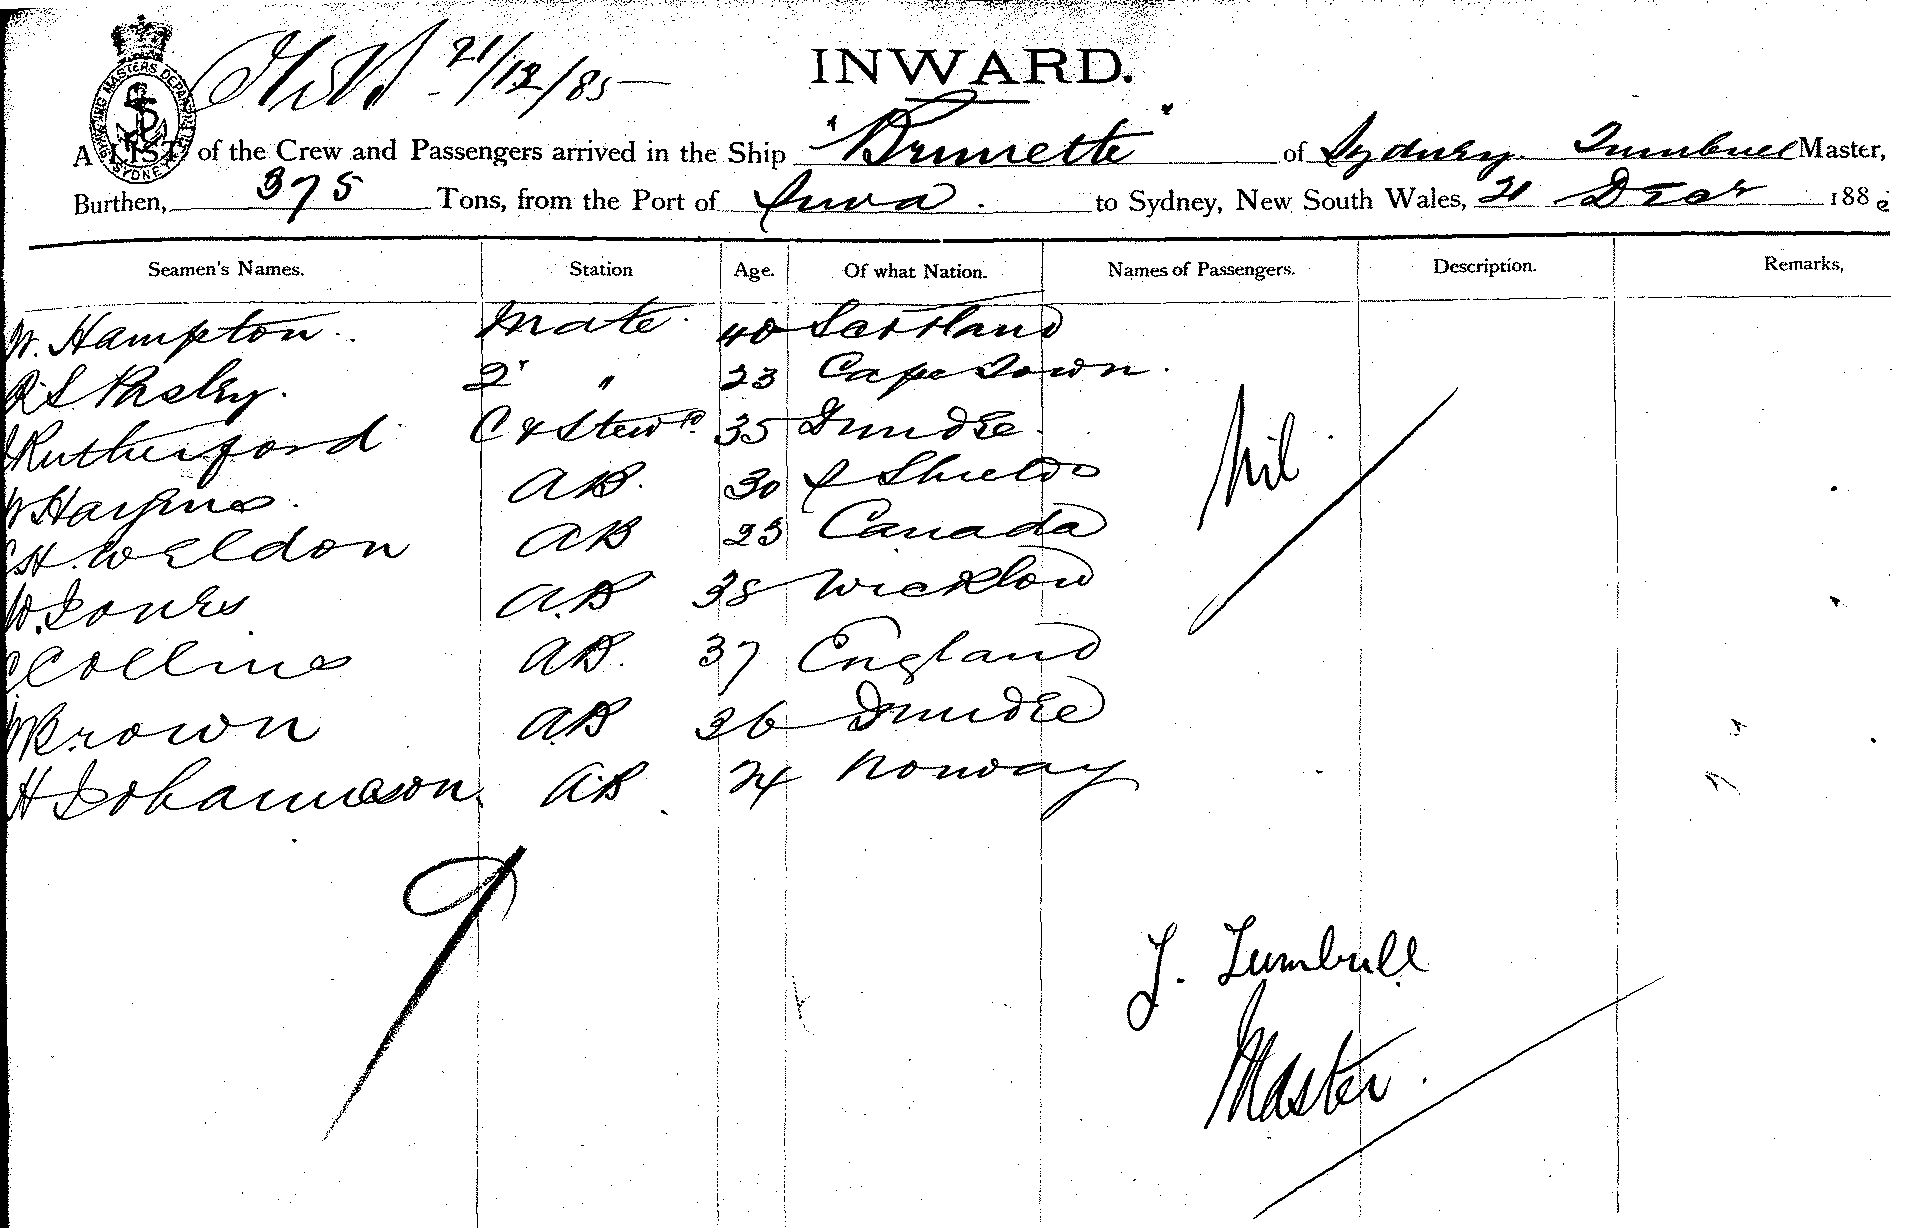 21/12/85
INWARD.
SHIPPING MASTERS DEPARTMENT SYDNEY
A LIST of the Crew and Passengers arrived in the Ship "Brunette" of Sydney Turnbull Master,
Burthen, 375 Tons, from the Port of Suva. to Sydney, New South Wales, 21 Decr 188
Seamen's Names. Station Age. Of what Nation. Names of Passengers. Description. Remarks,
W. Hampton. Mate 40 Scotland
R S Pasley. 2r " 23 Cape Town.
Rutherford C & Stewd 35 Dundee. Nil
W Haynes. AB. 30 S Shields
C H. Weldon AB 23 Canada
W. Jones A.B 38 Wicklow
C Collins AB. 37 England
Brown A.B 36 Dundee
H Johanneson AB 24 Norway
9
J. Turnbull
Master.